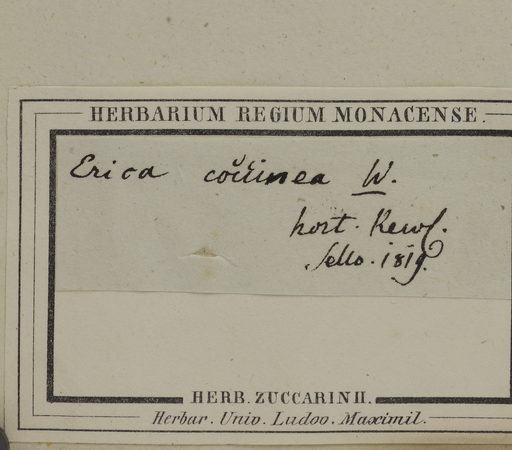 HERBARIUM REGIUM MONACENSE.
Erica coccinea W.
hort. Kews.
Sello. 1819.
HERB. ZUCCARINII.
Herbar. Univ. Ludov. Maximil.